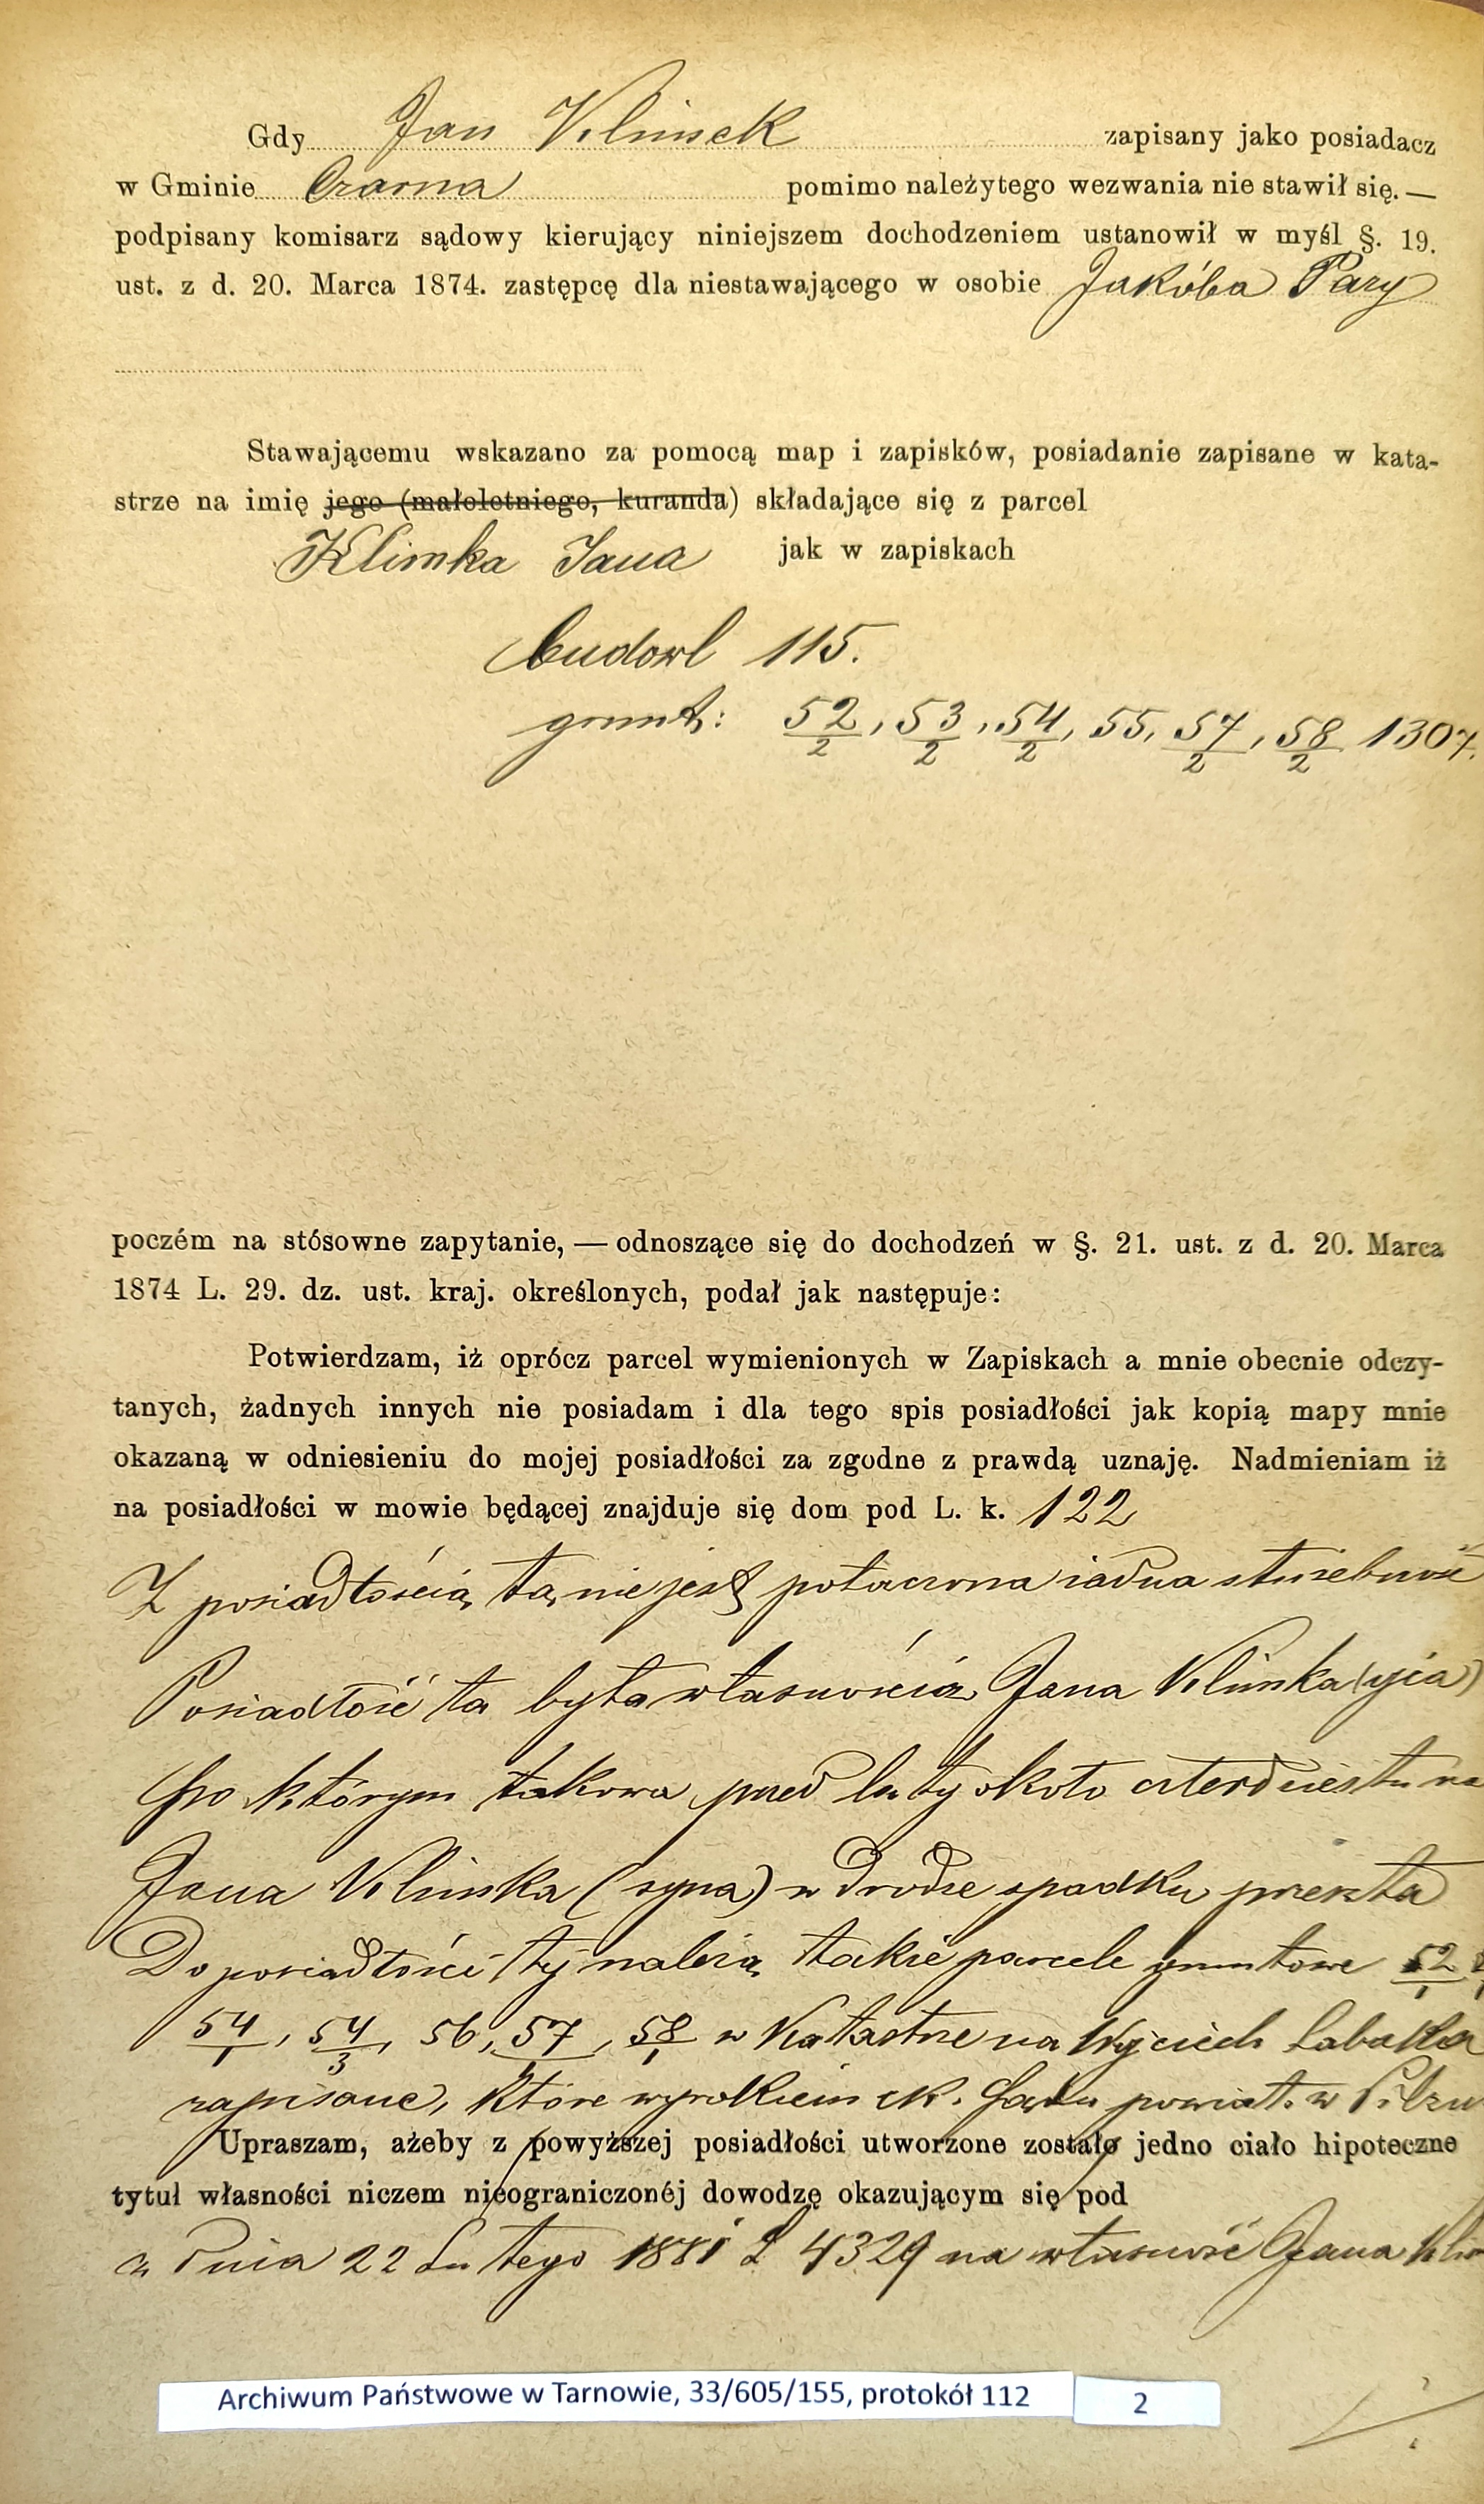 Gdy Jan Klimek zapisany jako posiadacz
w Gminie Czarna pomimo należytego wezwania nie stawił się. —
podpisany komisarz sądowy kierujący niniejszem dochodzeniem ustanowił w myśl §. 19.
ust. z d. 20. Marca 1874. zastępcę dla niestawającego w osobie Jakóba Pary
Stawającemu wskazano za pomocą map i zapisków, posiadanie zapisane w kata-
strze na imię jego (małoletniego, kuranda) składające się z parcel
Klimka Jana jak w zapiskach
budowl 115.
grunt: 52/2, 53/2, 54/2, 55, 57/2, 58/2 1307.
poczém na stósowne zapytanie, — odnoszące się do dochodzeń w §. 21. ust. z d. 20. Marca
1874 L. 29. dz. ust. kraj. określonych, podał jak następuje:
Potwierdzam, iż oprócz parcel wymienionych w Zapiskach a mnie obecnie odczy-
tanych, żadnych innych nie posiadam i dla tego spis posiadłości jak kopią mapy mnie
okazaną w odniesieniu do mojej posiadłości za zgodne z prawdą uznaję. Nadmieniam iż
na posiadłości w mowie będącej znajduje się dom pod L. k. 122
Z posiadłością tą nie jest połączona żadna służebność
Posiadłość ta była własnością Jana Klimka (ojca)
po którym takowa przed laty około czterdziestu na
Jana Klimka (syna) w drodze spadku przeszła
Do posiadłości tej należą także parcele gruntowe 52/1
54/1, 54/3, 56, 57/1, 58/1 w katastrze na Wojciech Łabaka
zapisane, które wyrokiem ck. Sądu powiat. w Pilzn
Upraszam, ażeby z powyższej posiadłości utworzone zostało jedno ciało hipoteczne
tytuł własności niczem nieograniczonéj dowodzę okazującym się pod
z dnia 22 Lutego 1881 L 4329 na własność Jana Klim
Archiwum Państwowe w Tarnowie, 33/605/155, protokół 112 2